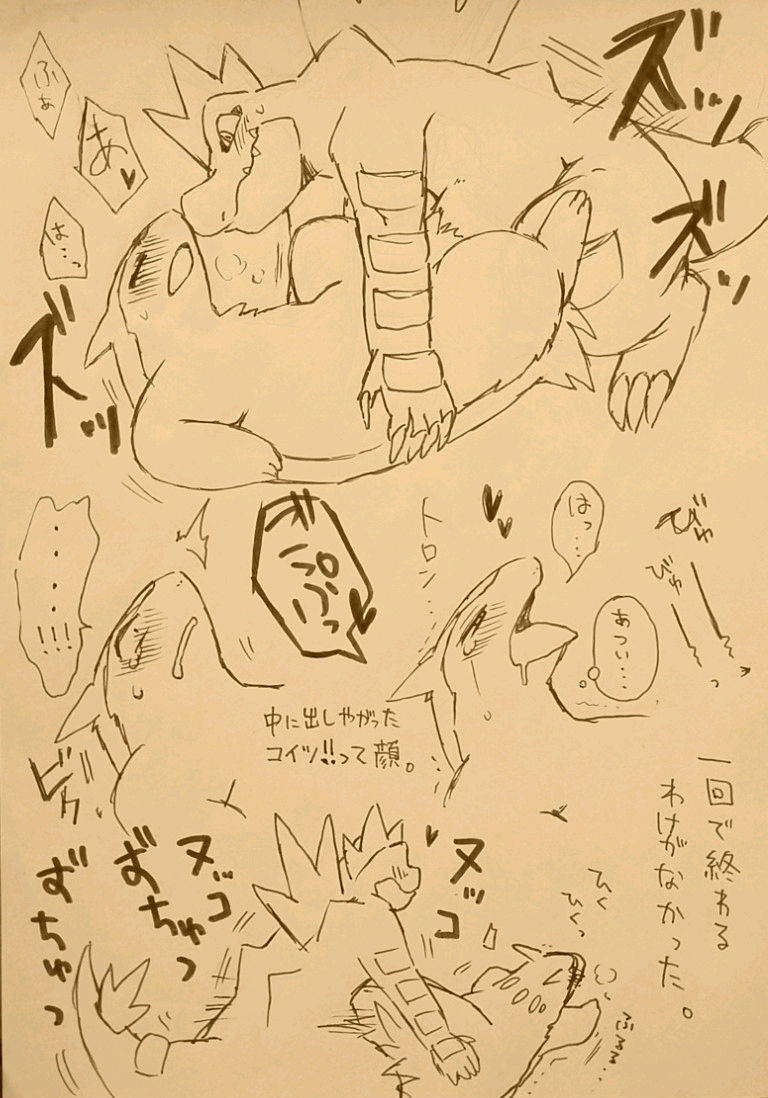 ズッ
ズッ
ふぁ
あ♥
は…っ
ズッ
びゅ
びゅ
はっ…
トロン…
あつい…
……!!!
中に出しやがった
コイツ!!って顔。
一回で終わる
わけがなかった。
ヌッコ
ヌッコ
ずちゅっ
ずちゅっ
ひく
ひくっ